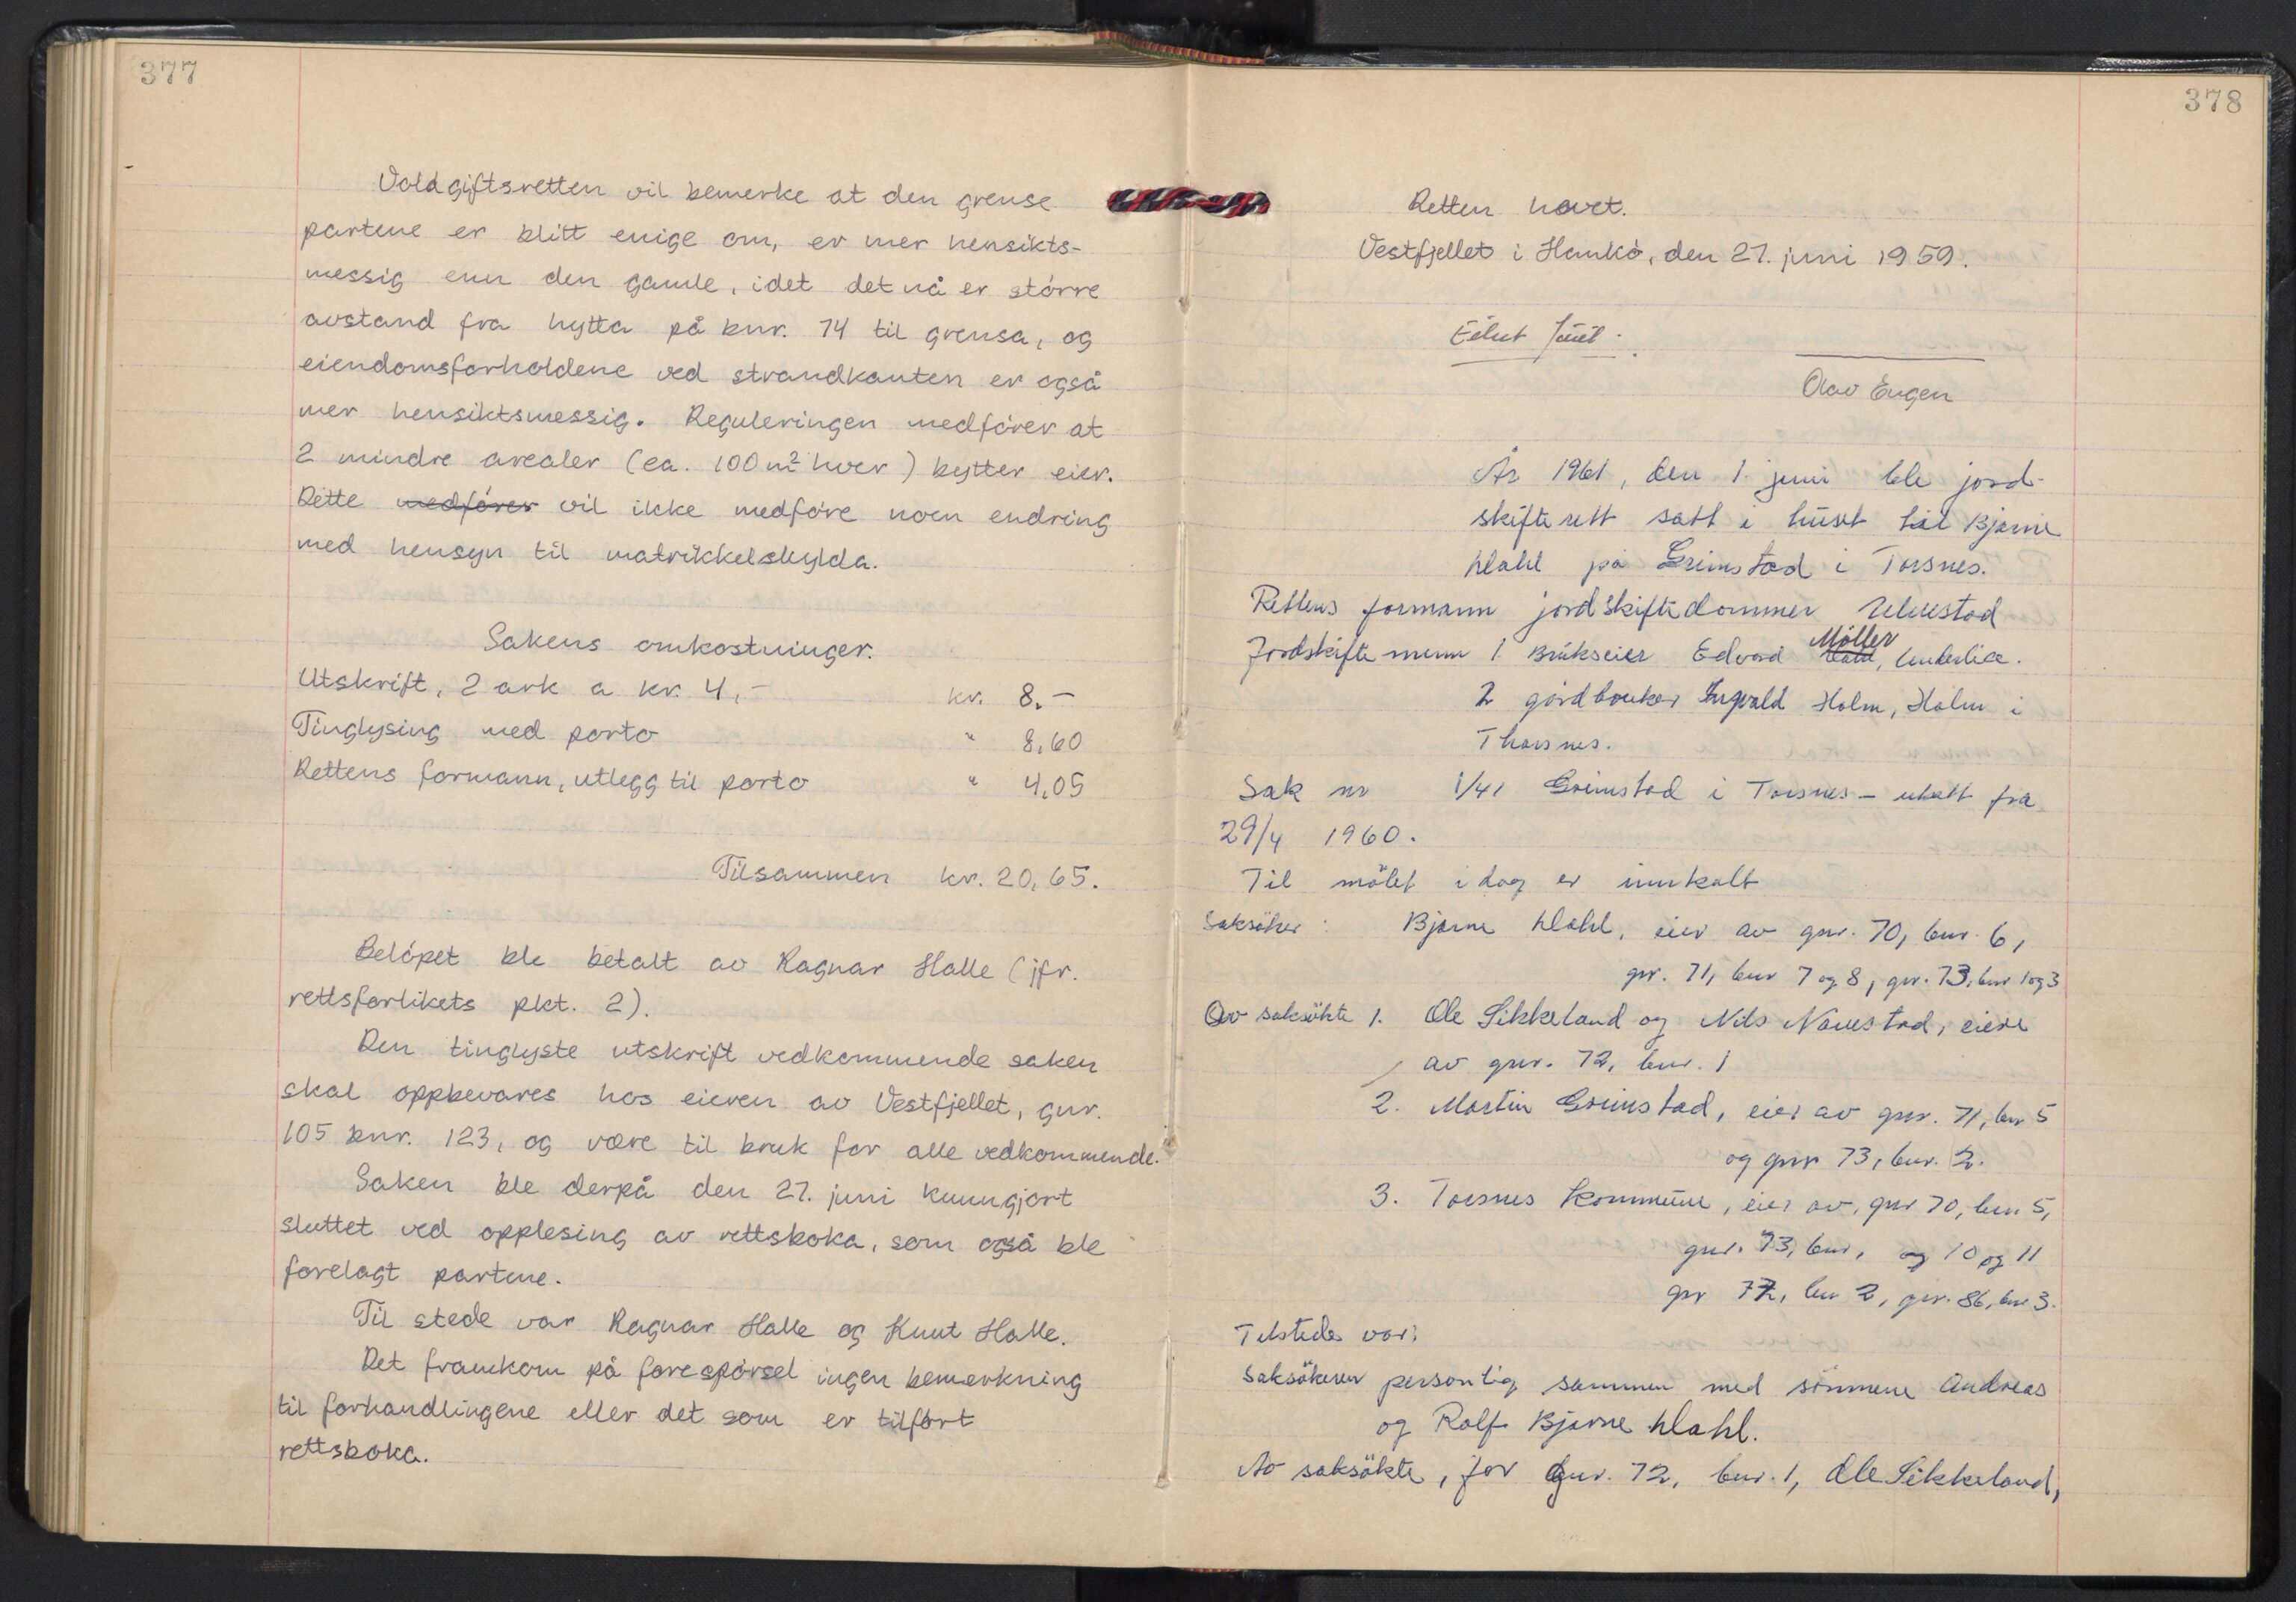 377
Voldgiftsretten vil bemerke at den grense
partene er blitt enige om, er mer hensikts-
messig enn den gamle, idet det nå er större
avstand fra hytta på bnr. 74 til grensa, og
eiendomsforholdene ved strandkanten er også
mer hensiktsmessig. Reguleringen medförer at
2 mindre arealer (ca. 100 m² hver) bytter eier.
Dette medförer vil ikke medföre noen endring
med hensyn til matrikkelskylda.
Sakens omkostninger.
Utskrift, 2 ark a kr. 4,- kr. 8.-
Tinglysing med porto " 8,60
Rettens formann, utlegg til porto " 4,05
Tilsammen kr. 20,65.
Belöpet ble betalt av Ragnar Halle (jfr.
rettsforlikets pkt. 2).
Den tinglyste utskrift vedkommende saken
skal oppbevares hos eieren av Vestfjellet, gnr.
105 bnr. 123, og være til bruk for alle vedkommende.
Saken ble derpå den 27. juni kunngjort
sluttet ved opplesing av rettsboka, som også ble
forelagt partene.
Til stede var Ragnar Halle og Knut Halle.
Det framkom på forespörsel ingen bemerkning
til forhandlingene eller det som er tilfört
rettsboka.
378
Retten hevet.
Vestfjellet i Hankö, den 27. juni 1959.
Olav Eugen
År 1961, den 1. juni ble jord-
skifterett satt i huset til Bjarne
Dahl på Grimstad i Torsnes.
Rettens formann jordskiftedommer
Jordskiftemenn 1. Brukseier Edvard Möller
2 gårdbruker Ingvald Holm, Holm i
Thorsnes.
Sak nr 1/41 Grimstad i Torsnes - utsatt fra
29/4 1960.
Til mötet i dag er innkalt
Saksöker: Bjarne Dahl, eier av gnr. 70, bnr. 6,
gnr. 71, bnr 7 og 8, gnr. 73, bnr 1 og 3
Av saksökte 1. Ole Sikkeland og Nils Navestad, eiere
av gnr. 72, bnr. 1
2. Martin Grimstad, eier av gnr. 71, bnr 5
og gnr 73, bnr. 2.
3. Torsnes kommune, eier av, gnr 70, bnr 5,
gnr. 73, bnr, og 10 og 11
gnr 72, bnr 2, gnr. 86, bnr 3.
Tilstede var:
Saksökeren personlig sammen med sönnene Andreas
og Rolf Bjarne Dahl.
Av saksökte, for gnr. 72, bnr. 1, Ole Sikkeland,